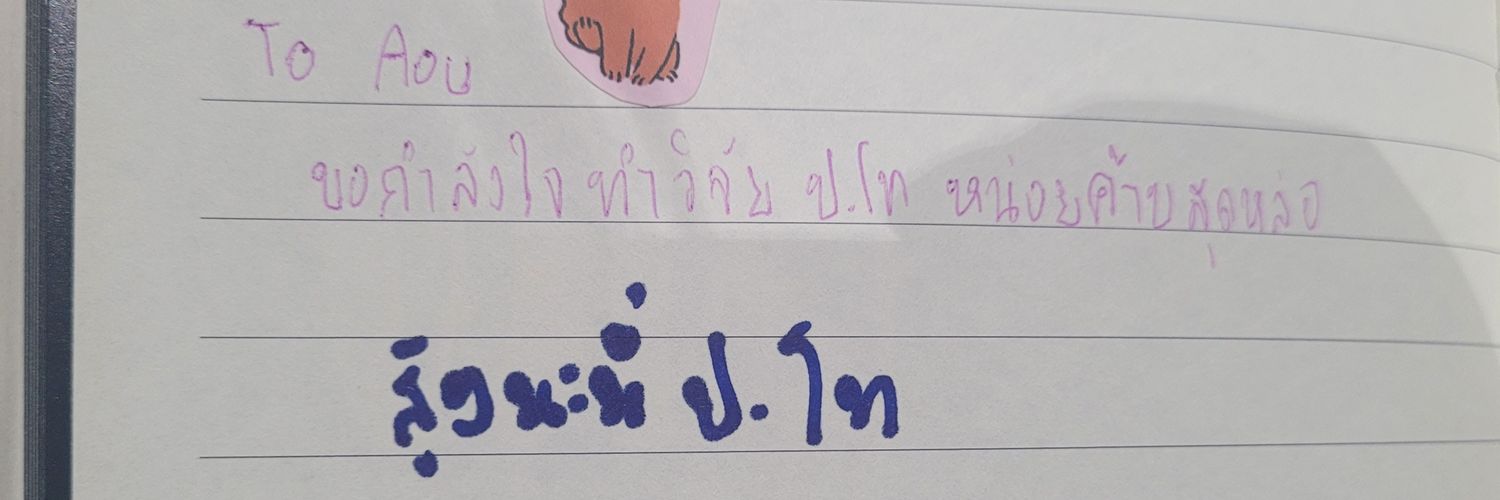 To Aou
ขอกำลังใจ ทำวิจัย ป.โท หน่อยค้าบสุดหล่อ
สู้ๆนะนี่ ป.โท